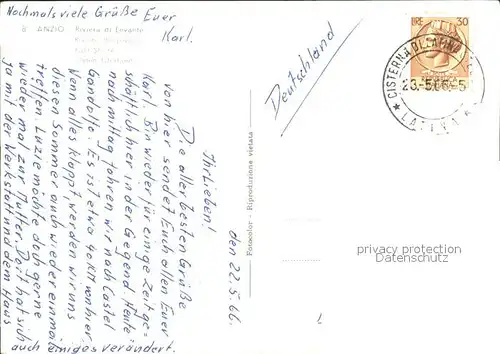 Nochmals viele Grüße Euer
Karl.
8 ANZIO Riviera di Levante
Deutschland
LIRE 30
CISTERNA DI LATINA
23.-5.66
LATINA
den 22.5.66.
Ihr Lieben!
Die aller besten Grüße
von hier sendet Euch allen Euer
Karl. Bin wieder für einige Zeit ge-
schäftlich hier in der Gegend. Heute
nachmittag fahren wir nach Castel
Gandolfo. Es ist etwa 40 KM von hier.
Wenn alles klappt, werden wir uns
diesen Sommer auch wieder einmal
treffen. Luzie möchte doch gerne
wieder mal zur Mutter. Dort hat sich
ja mit der Werkstatt und dem Haus
auch einiges verändert.
Fotocolor - Riproduzione vietata
privacy protection
Datenschutz